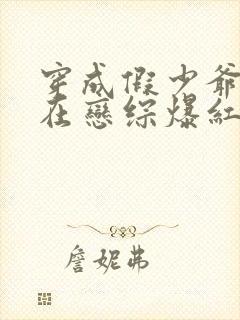 穿成假少爺
在戀綜爆紅
詹妮弗